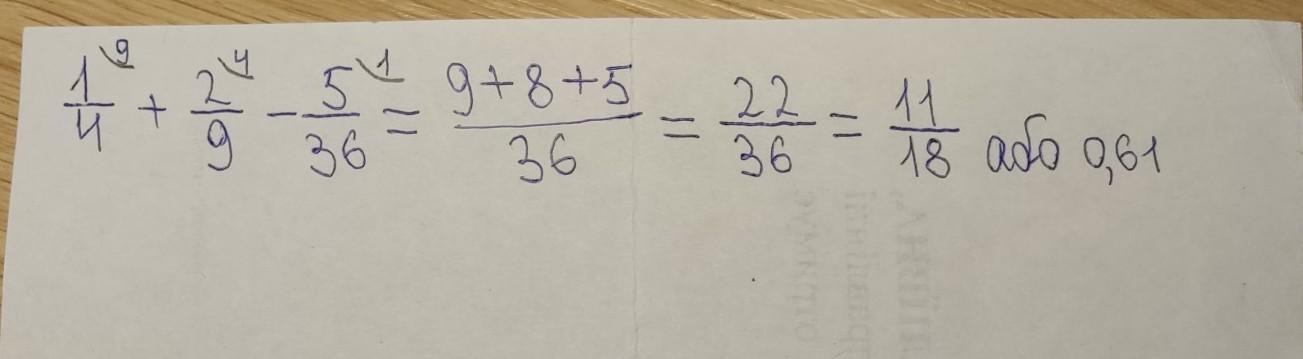 1/4 \9 + 2/9 \4 - 5/36 \1 = 9+8+5/36 = 22/36 = 11/18 або 0,61